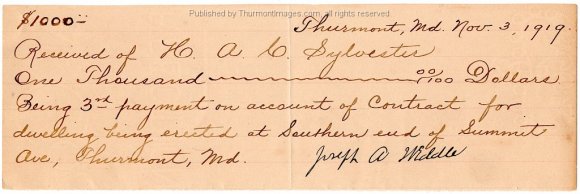 Published by ThurmontImages.com, all rights reserved
$1000= Thurmont, Md. Nov. 3, 1919.
Received of H. A. C. Sylvester
One Thousand 00/100 Dollars
Being 3rd payment on account of Contract for
dwelling being erected at Southern end of Summit
Ave, Thurmont, Md. Joseph A Widdle